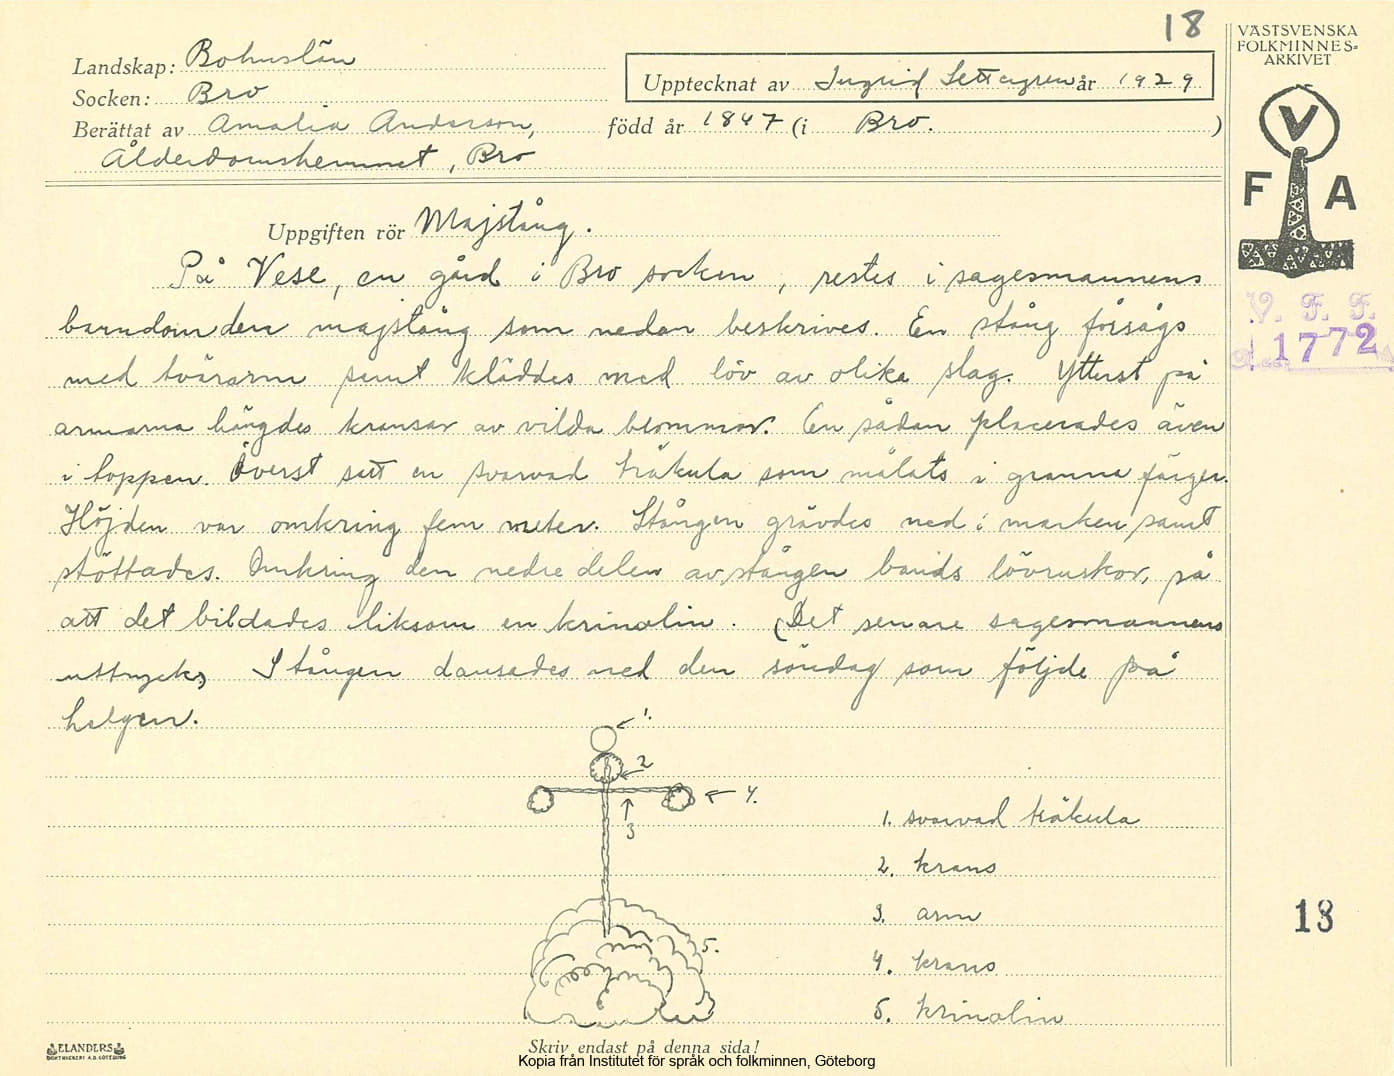 18
VÄSTSVENSKA
FOLKMINNES-
ARKIVET
Landskap: Bohuslän
Socken: Bro
Upptecknat av Ingrid Settergren år 1929
Berättat av Amalia Anderson, född år 1847 (i Bro. )
Ålderdomshemmet, Bro
V
F A
Uppgiften rör Majstång.
På Vese, en gård i Bro socken, restes i sagesmannens
barndom den majstång som nedan beskrives. En stång försågs
med tvärarm samt kläddes med löv av olika slag. Ytterst på
armarna hängdes kransar av vilda blommor. En sådan placerades även
i toppen. Överst satt en svarvad träkula som målats i granna färger.
Höjden var omkring fem meter. Stången grävdes ned i marken samt
stöttades. Omkring den nedre delen av stången bands lövruskor, så
att det bildades liksom en krinolin. (Det senare sagesmannens
uttryck) Stången dansades ned den söndag som följde på
helgen.
V. F. F.
1772
1.
2
4.
3
5.
1. svarvad träkula
2. krans
3. arm
4. krans
5. krinolin
18
ELANDERS
BOKTRYCKERI A.B. GÖTEBORG
Skriv endast på denna sida!
Kopia från Institutet för språk och folkminnen, Göteborg